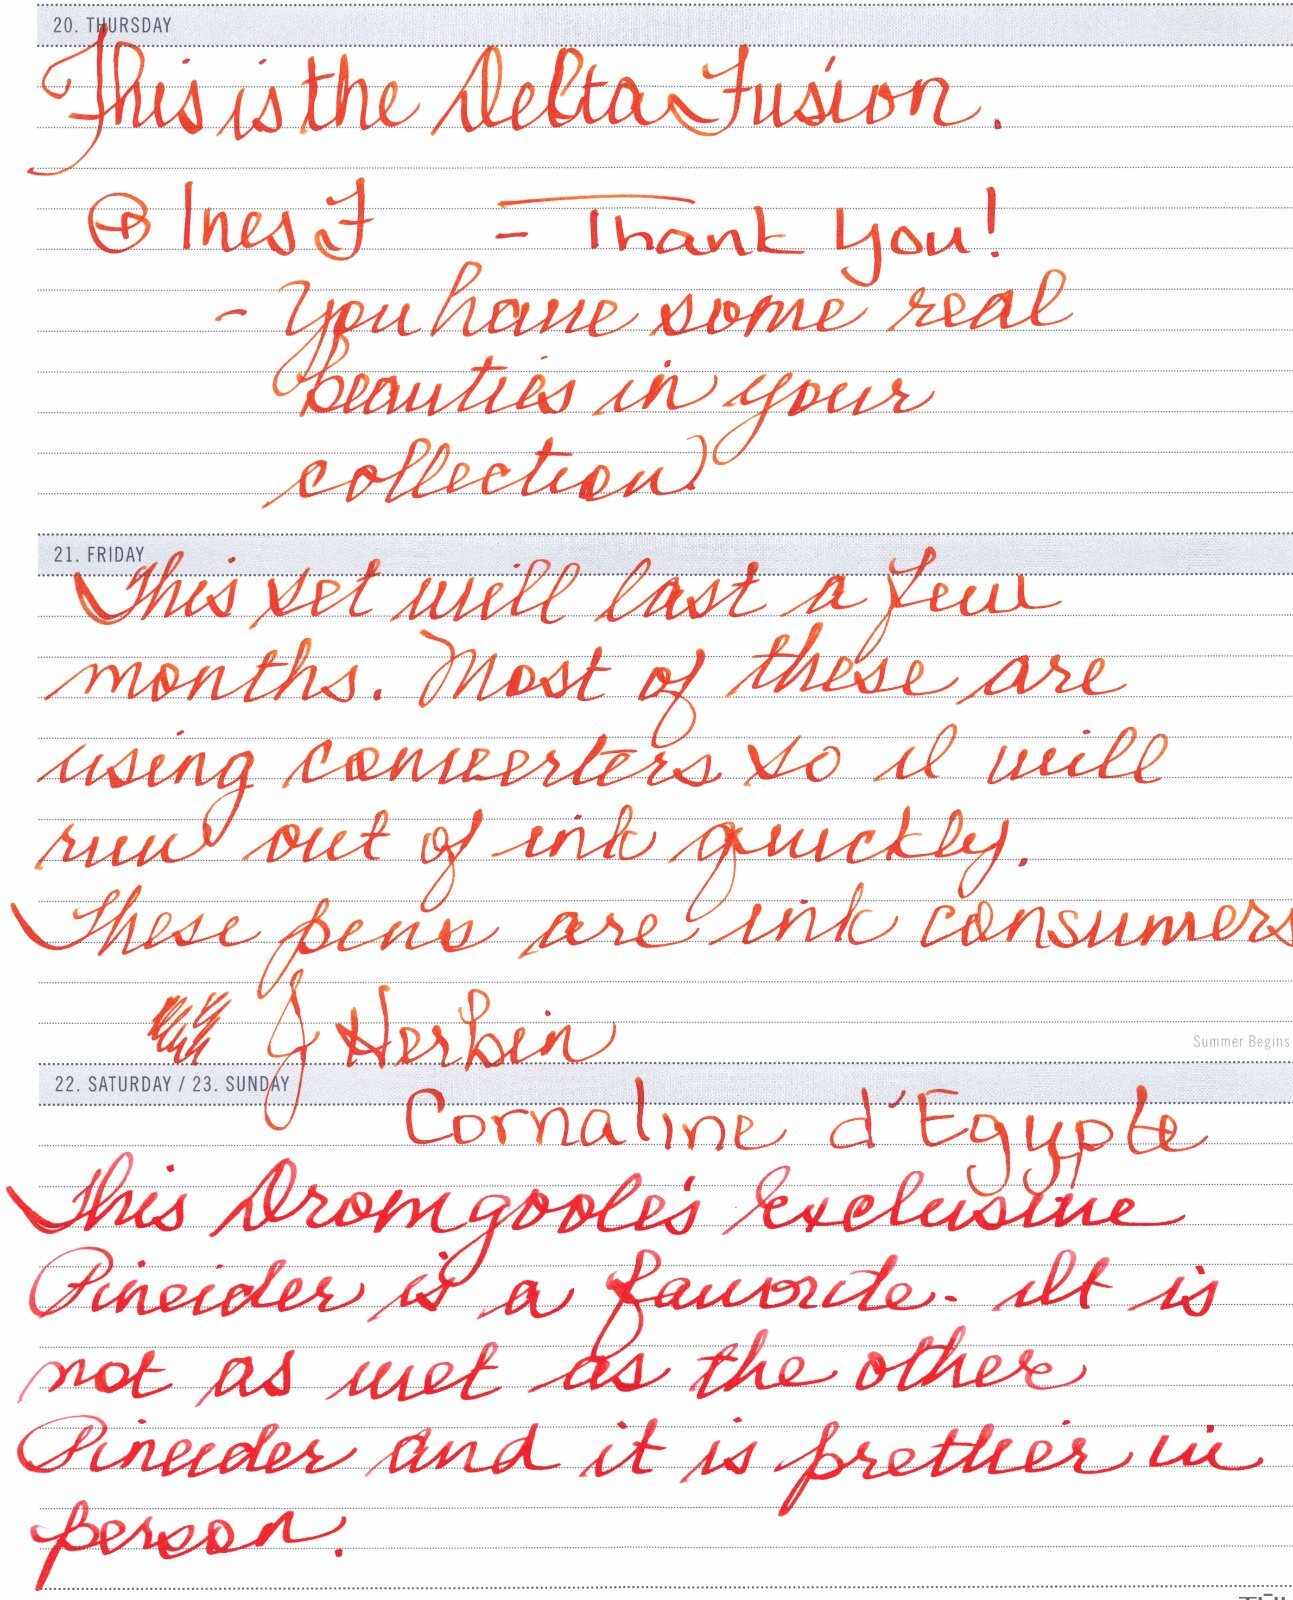 20. THURSDAY
This is the Delta Fusion.
Ines F - Thank You!
- You have some real
beauties in your
collection.
21. FRIDAY
This set will last a few
months. Most of these are
using converters so it will
run out of ink quickly.
These pens are ink consumers
J Herbin
Summer Begins
22. SATURDAY / 23. SUNDAY
Cornaline d'Egypte
This Dromgoole's Exclusive
Pineider is a favorite. It is
not as wet as the other
Pineider and it is prettier in
person.